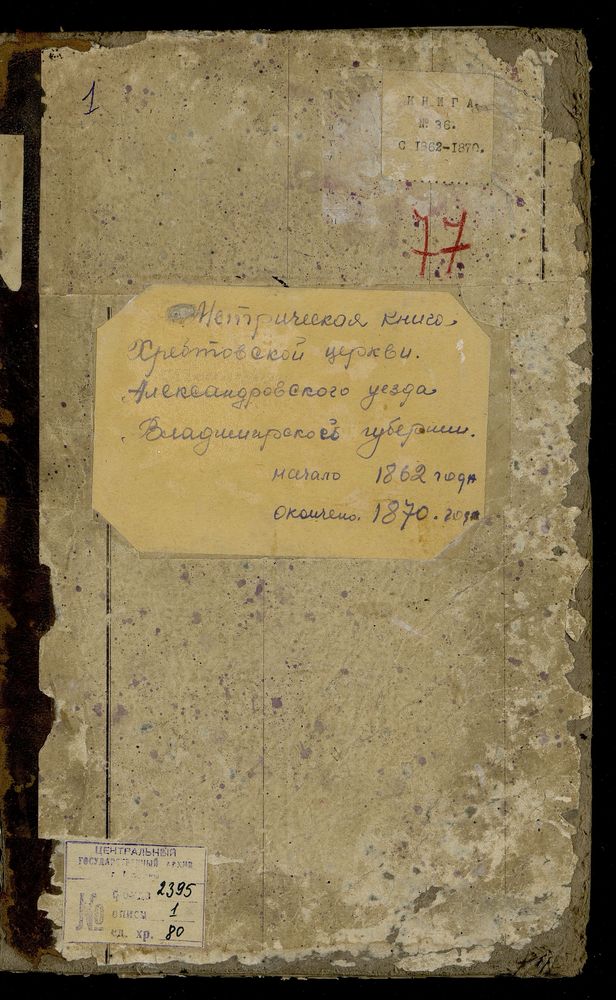 1
КНИГА
№ 36.
С 1862-1870.
77
Метрическая книга
Хребтовской церкви.
Александровского уезда
Владимирской губернии.
начало 1862 года
окончено. 1870. года
ЦЕНТРАЛЬНЫЙ
ГОСУДАРСТВЕННЫЙ АРХИВ
г.
№
фонда 2395
описи 1
ед. хр. 80